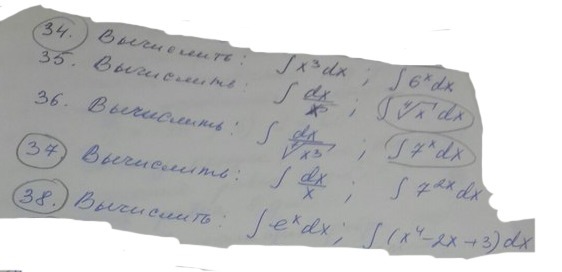 34. Вычислить: ∫x³dx ; ∫6ˣdx
35. Вычислить: ∫dx/x⁵ ; ∫∜x dx
36. Вычислить: ∫dx/∜x³ ; ∫7ˣdx
37. Вычислить: ∫dx/x ; ∫7²ˣdx
38. Вычислить: ∫eˣdx; ∫(x⁴-2x+3)dx